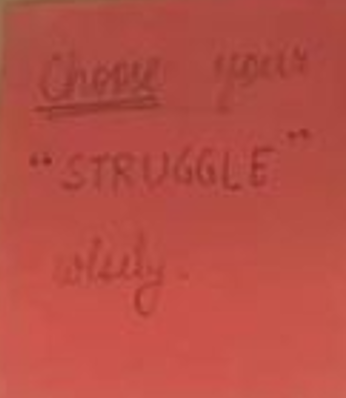 Choose your
"STRUGGLE"
wisely.